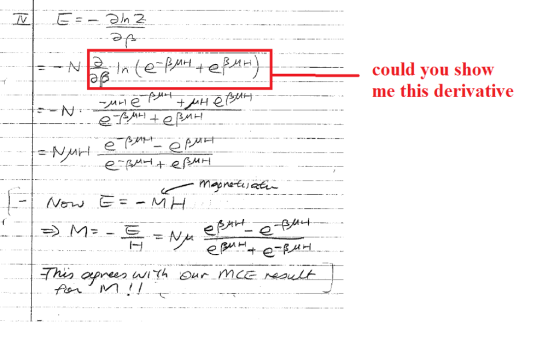 IV E = - ∂lnZ / ∂β
= - N ∂/∂β ln (e^{-βμH} + e^{βμH})
could you show
me this derivative
= - N · (-μH e^{-βμH} + μH e^{βμH}) / (e^{-βμH} + e^{βμH})
= NμH (e^{-βμH} - e^{βμH}) / (e^{-βμH} + e^{βμH})
magnetisation
- Now E = - MH
⇒ M = - E/H = Nμ (e^{βμH} - e^{-βμH}) / (e^{βμH} + e^{-βμH})
This agrees with our MCE result
for M !!